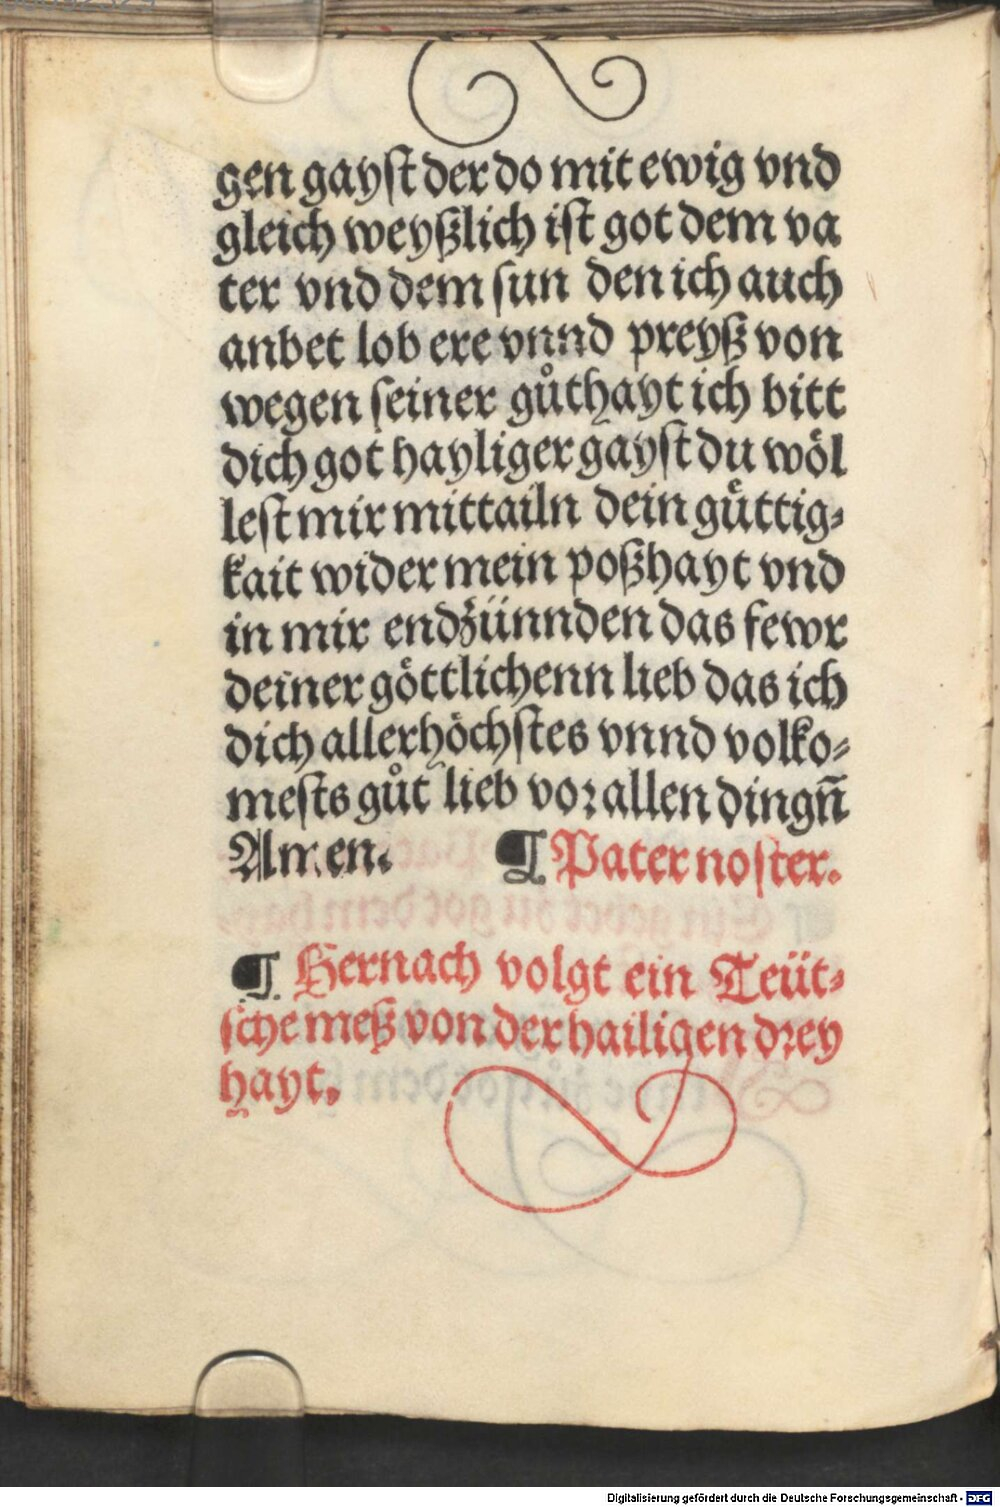 gen gayſt der do mit ewig vnd
gleich weyßlich iſt got dem va
ter vnd dem ſun den ich auch
anbet lob ere vnnd preyß von
wegen ſeiner gůthayt ich bitt
dich got hayliger gayſt du wöl
leſt mir mittailn dein güttig⸗
kait wider mein poßhayt vnd
in mir endzünnden das fewr
deiner göttlichenn lieb das ich
dich allerhöchſtes vnnd volko⸗
meſts gůt lieb vor allen dingn̄
Amen. ¶ Pater noſter.
¶ Hernach volgt ein Teüt⸗
ſche meß von der hailigen drey
hayt.
Digitalisierung gefördert durch die Deutsche Forschungsgemeinschaft - DFG